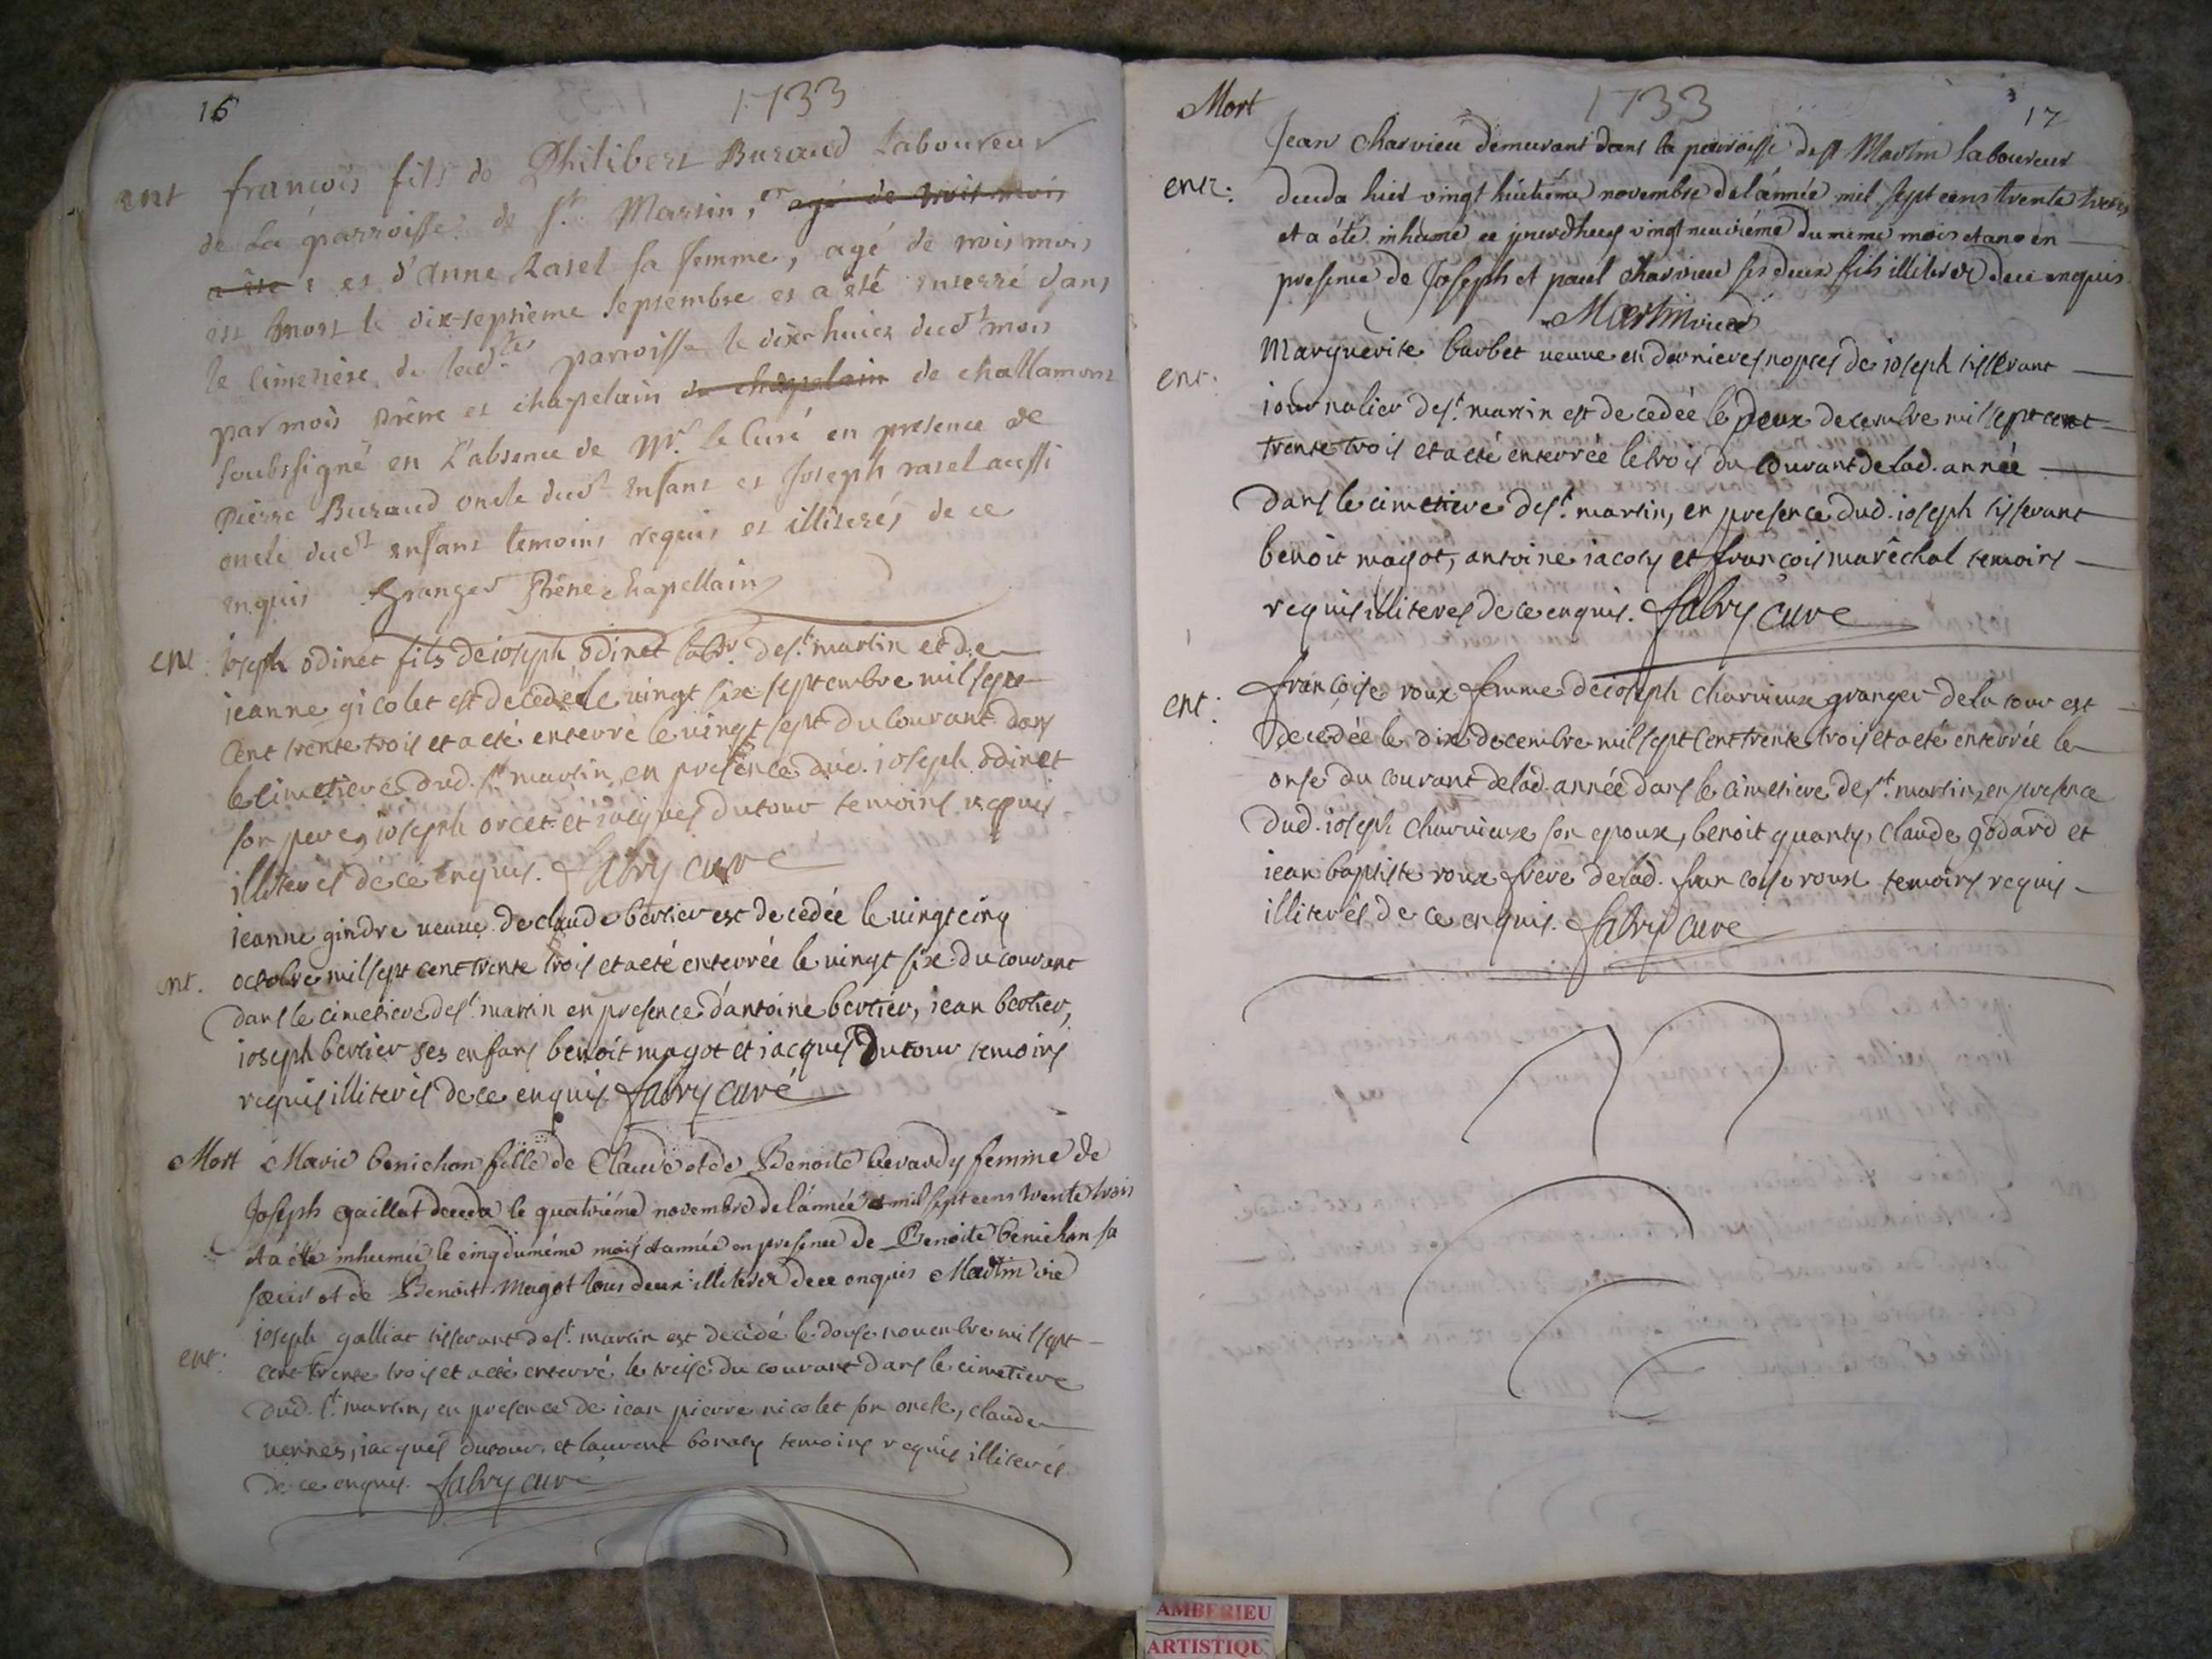 16
1733
ent françois fils de Philibert Buraud Laboureur
de La parroisse de st Martin, agé de trois mois
a été et d'anne Ravel sa femme, agé de trois mois
est mort le dix-septième septembre et a été enterré dans
le cimetière de lad.te parroisse le dix-huict dud.t mois
par moi Prêtre et chapelain de chapelain de challamont
soubssigné en l'absence de Mr. Le Curé en presence de
Pierre Buraud oncle dud.t enfant et Joseph ravel aussi
oncle dud.t enfant temoins requis et illiterés de ce
enquis Granger Prêtre chapellain
ent. ioseph odinet fils de ioseph odinet labr. de st. martin et de
ieanne gicolet est decedé le vingt six septembre mil sept
cent trente trois et a eté enterré le vingt sept du courant dans
le cimetiere dud. st. martin, en presence dud. ioseph odinet
son pere, ioseph orcet et iacques dutour temoins requis
illiterés de ce enquis. fabry curé
ieanne gindre veuve de claude bertier est decedée le vingt cinq
ent. octobre mil sept cent trente trois et a eté enterrée le vingt six du courant
dans le cimetiere de st. martin en presence d'antoine bertier, iean bertier,
ioseph bertier ses enfans benoit magot et iacques Dutour temoins
requis illiterés de ce enquis. fabry curé
Mort Marie benichon fille de Claude et de Benoite berardy femme de
Joseph gaillat deceda le quatriéme novembre de l'année mil sept cens trente trois
et a été inhumée le cinq du même mois et année en presence de Benoite benichon sa
sœur et de Benoit Magot tous deux illiterez de ce enquis Martin vic
ioseph galliat tisserant de st. martin est decédé le douse novembre mil sept
ent. cent trente trois et a eté enterré le treise du courant dans le cimetiere
dud. st. martin, en presence de iean pierre nicolet son oncle, claude
vernes, iacques dutour, et laurent bonaty temoins requis illiterés
de ce enquis. fabry curé
1733
17
Mort Jean Charvieu demeurant dans la parroisse de st Martin laboureur
ent. deceda hier vingt huitiéme novembre de l'année mil sept cens trente trois
et a été inhumé ce jourd'huy vingt neuviéme du meme mois et an en
presence de Joseph et paul charvieu ses deux fils illiterez de ce enquis
Martin vic
Marguerite barbet veuve en dernieres nopces de ioseph tisserant
ent. iournalier de st. martin est decedée le deux decembre mil sept cent
trente trois et a eté enterrée le trois du courant de lad. année
dans le cimetiere de st. martin, en presence dud. ioseph tisserant
benoit magot, antoine iacoty et françois maréchal temoins
requis illiterés de ce enquis. fabry curé
ent. françoise roux femme de ioseph charvieux granger de la tour est
decedée le dix decembre mil sept cent trente trois et a eté enterrée le
onse du courant de lad. année dans le cimetiere de st. martin, en presence
dud. ioseph charvieux son epoux, benoit quanty, claude godard et
iean baptiste roux frere de lad. francoise roux temoins requis
illiterés de ce enquis. fabry curé
AMBERIEU
ARTISTIQU